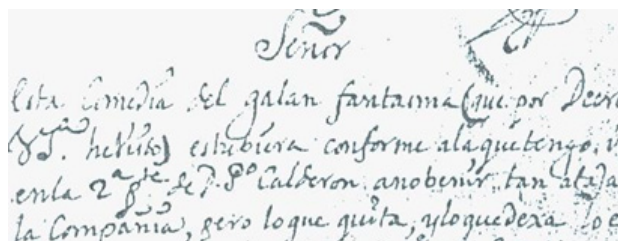 Señor
Esta Comedia del galan fantasma (que por Decre
he visto) estubiera conforme ala que tengo,
en la 2ª pte de Dn Po Calderon, a no benir tan ataja
la Compañia, pero lo que quita, y lo que dexa